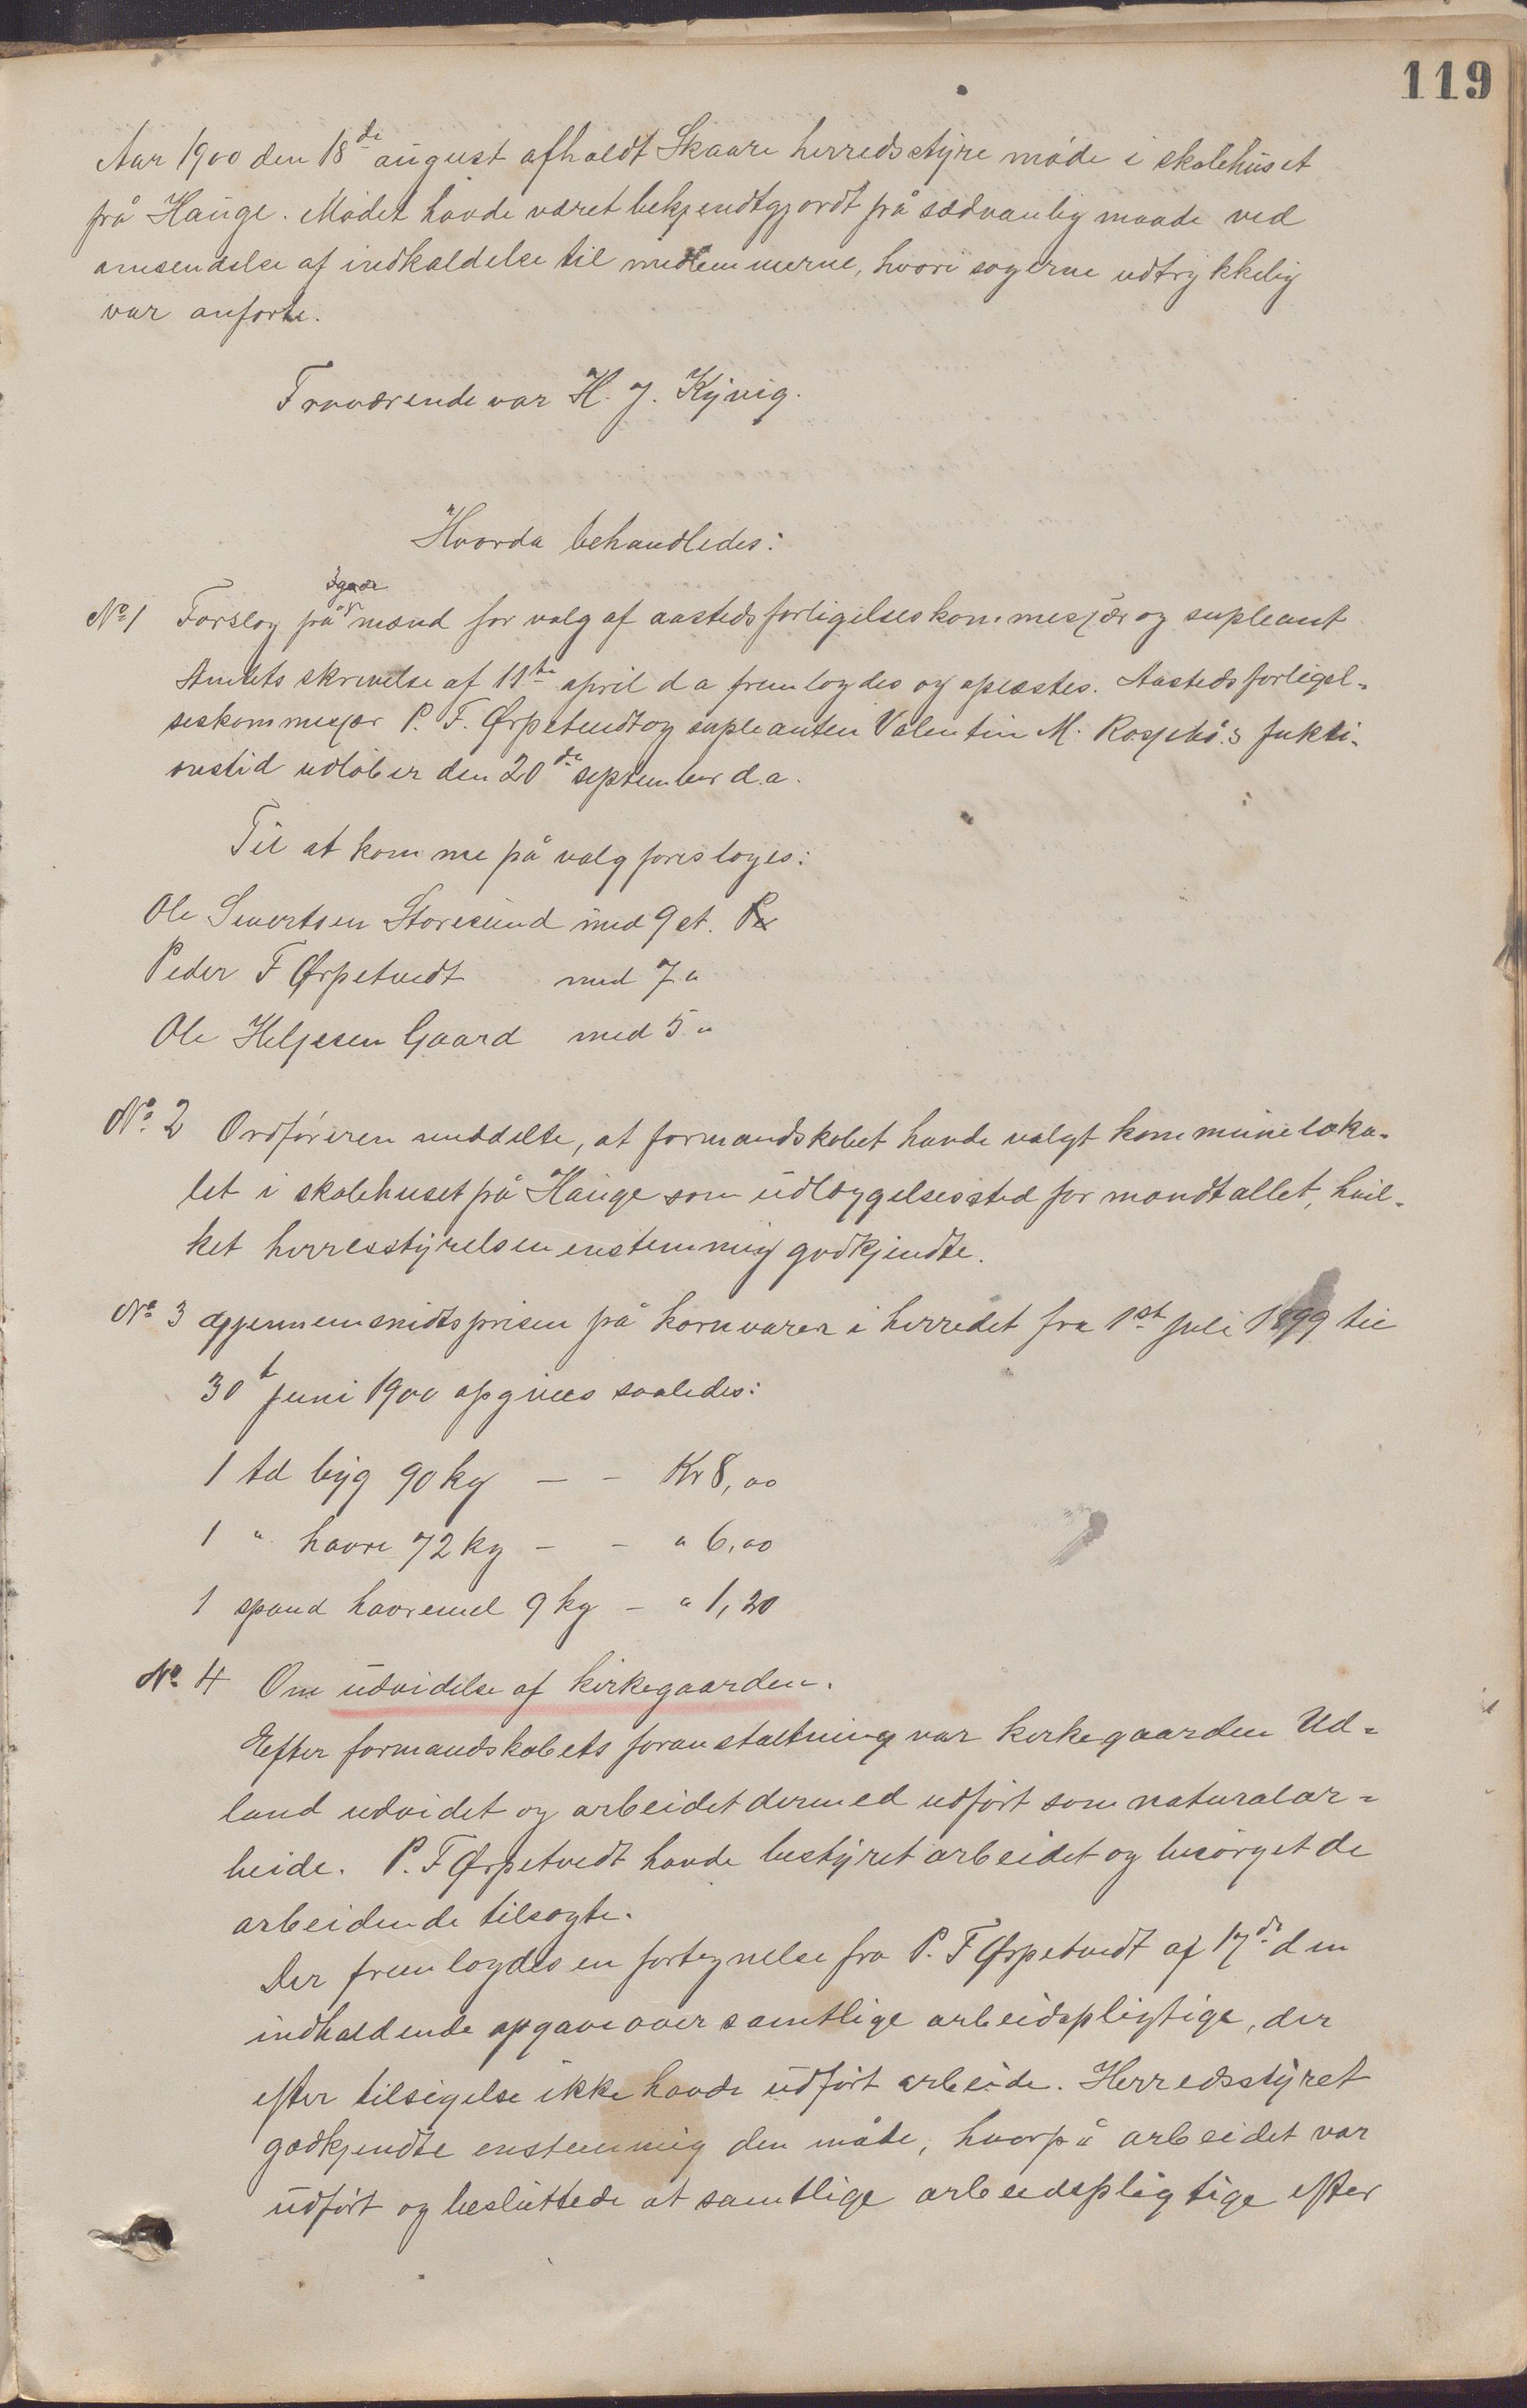 119
Aar 1900 den 18de august afholdt Skaare herredsstyre møde i skolehuset
på Hauge. Mødet havde været bekjendtgjordt på sædvanlig maade ved
omsendelse af indkaldelse til medlemmerne, hvori sagerne udtrykkelig
var anførte.
Fraværende var H. J. Kyvig.
Hvorda behandledes:
No 1 Forslag på mænd for valg af aastedsforligelseskommesjær og supleant
Amtets skrivelse af 11te april d a fremlagdes og oplæstes. Aastedsforligel-
seskommesjær P. F. Ørpetvedt og supleanten Valentin M. Røsjehø's fukti-
onstid udløber den 20de september d.a.
Til at komme på valg foresloges:
Ole Sivertsen Storesund med 9 st.
Peder F Ørpetvedt med 7 "
Ole Helgesen Gaard med 5 "
No. 2 Ordføreren meddelte, at formandskabet havde valgt kommuneloka-
let i skolehuset på Hauge som udlæggelsessted for mandtallet, hvil-
ket herresstyrelsen enstemmig godkjendte.
No 3 Gjennemsnidtsprisen på kornvarer i herredet fra 1st juli 1899 til
30t juni 1900 opgives saaledes:
1 td byg 90 kg — - Kr 8,00
1 " havre 72 kg - - " 6,00
1 spand havremel 9 kg - " 1,20
No. 4 Om udvidelse af kirkegaarden.
Efter formandskabets foranstaltning var kirkegaarden Ud-
land udvidet og arbeidet dermed udført som naturalar-
beide. P. F Ørpetvedt havde bestyret arbeidet og besørget de
arbeidende tilsagte.
Der fremlagdes en fortegnelse fra P. F Ørpetvedt af 17de d m
indholdende opgave over samtlige arbeidspligtige, der
efter tilsigelse ikke havde udført arbeide. Herredsstyret
godkjendte enstemmig den måde, hvorpå arbeidet var
udført og besluttede at samtlige arbeidspligtige efter